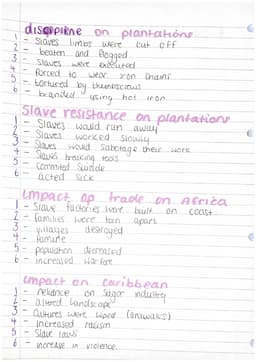 discipline on plantations
1 - Slaves limbs were cut off
2 - beaten and flogged
3 - Slaves were executed
4 - forced to wear iron chains
5 - tortured by thumbscrews
6 - branded using hot iron
Slave resistance on plantations
1 - Slaves would run away
2 - Slaves worked slowly
3 - Slaves would sabotage their work
4 - Slaves breaking tools
5 - Commited Suicide
6 - acted sick
impact of trade on Africa
1 - Slave factories were built on coast
2 - families were torn apart
3 - villages destroyed
4 - famine
5 - population decreased
6 - increased warfare
impact on caribbean
1 - reliance on sugar industry
2 - altered landscape
3 - Cultures were wiped (arawaks)
4 - increased racism
5 - Slave laws
6 - increase in violence